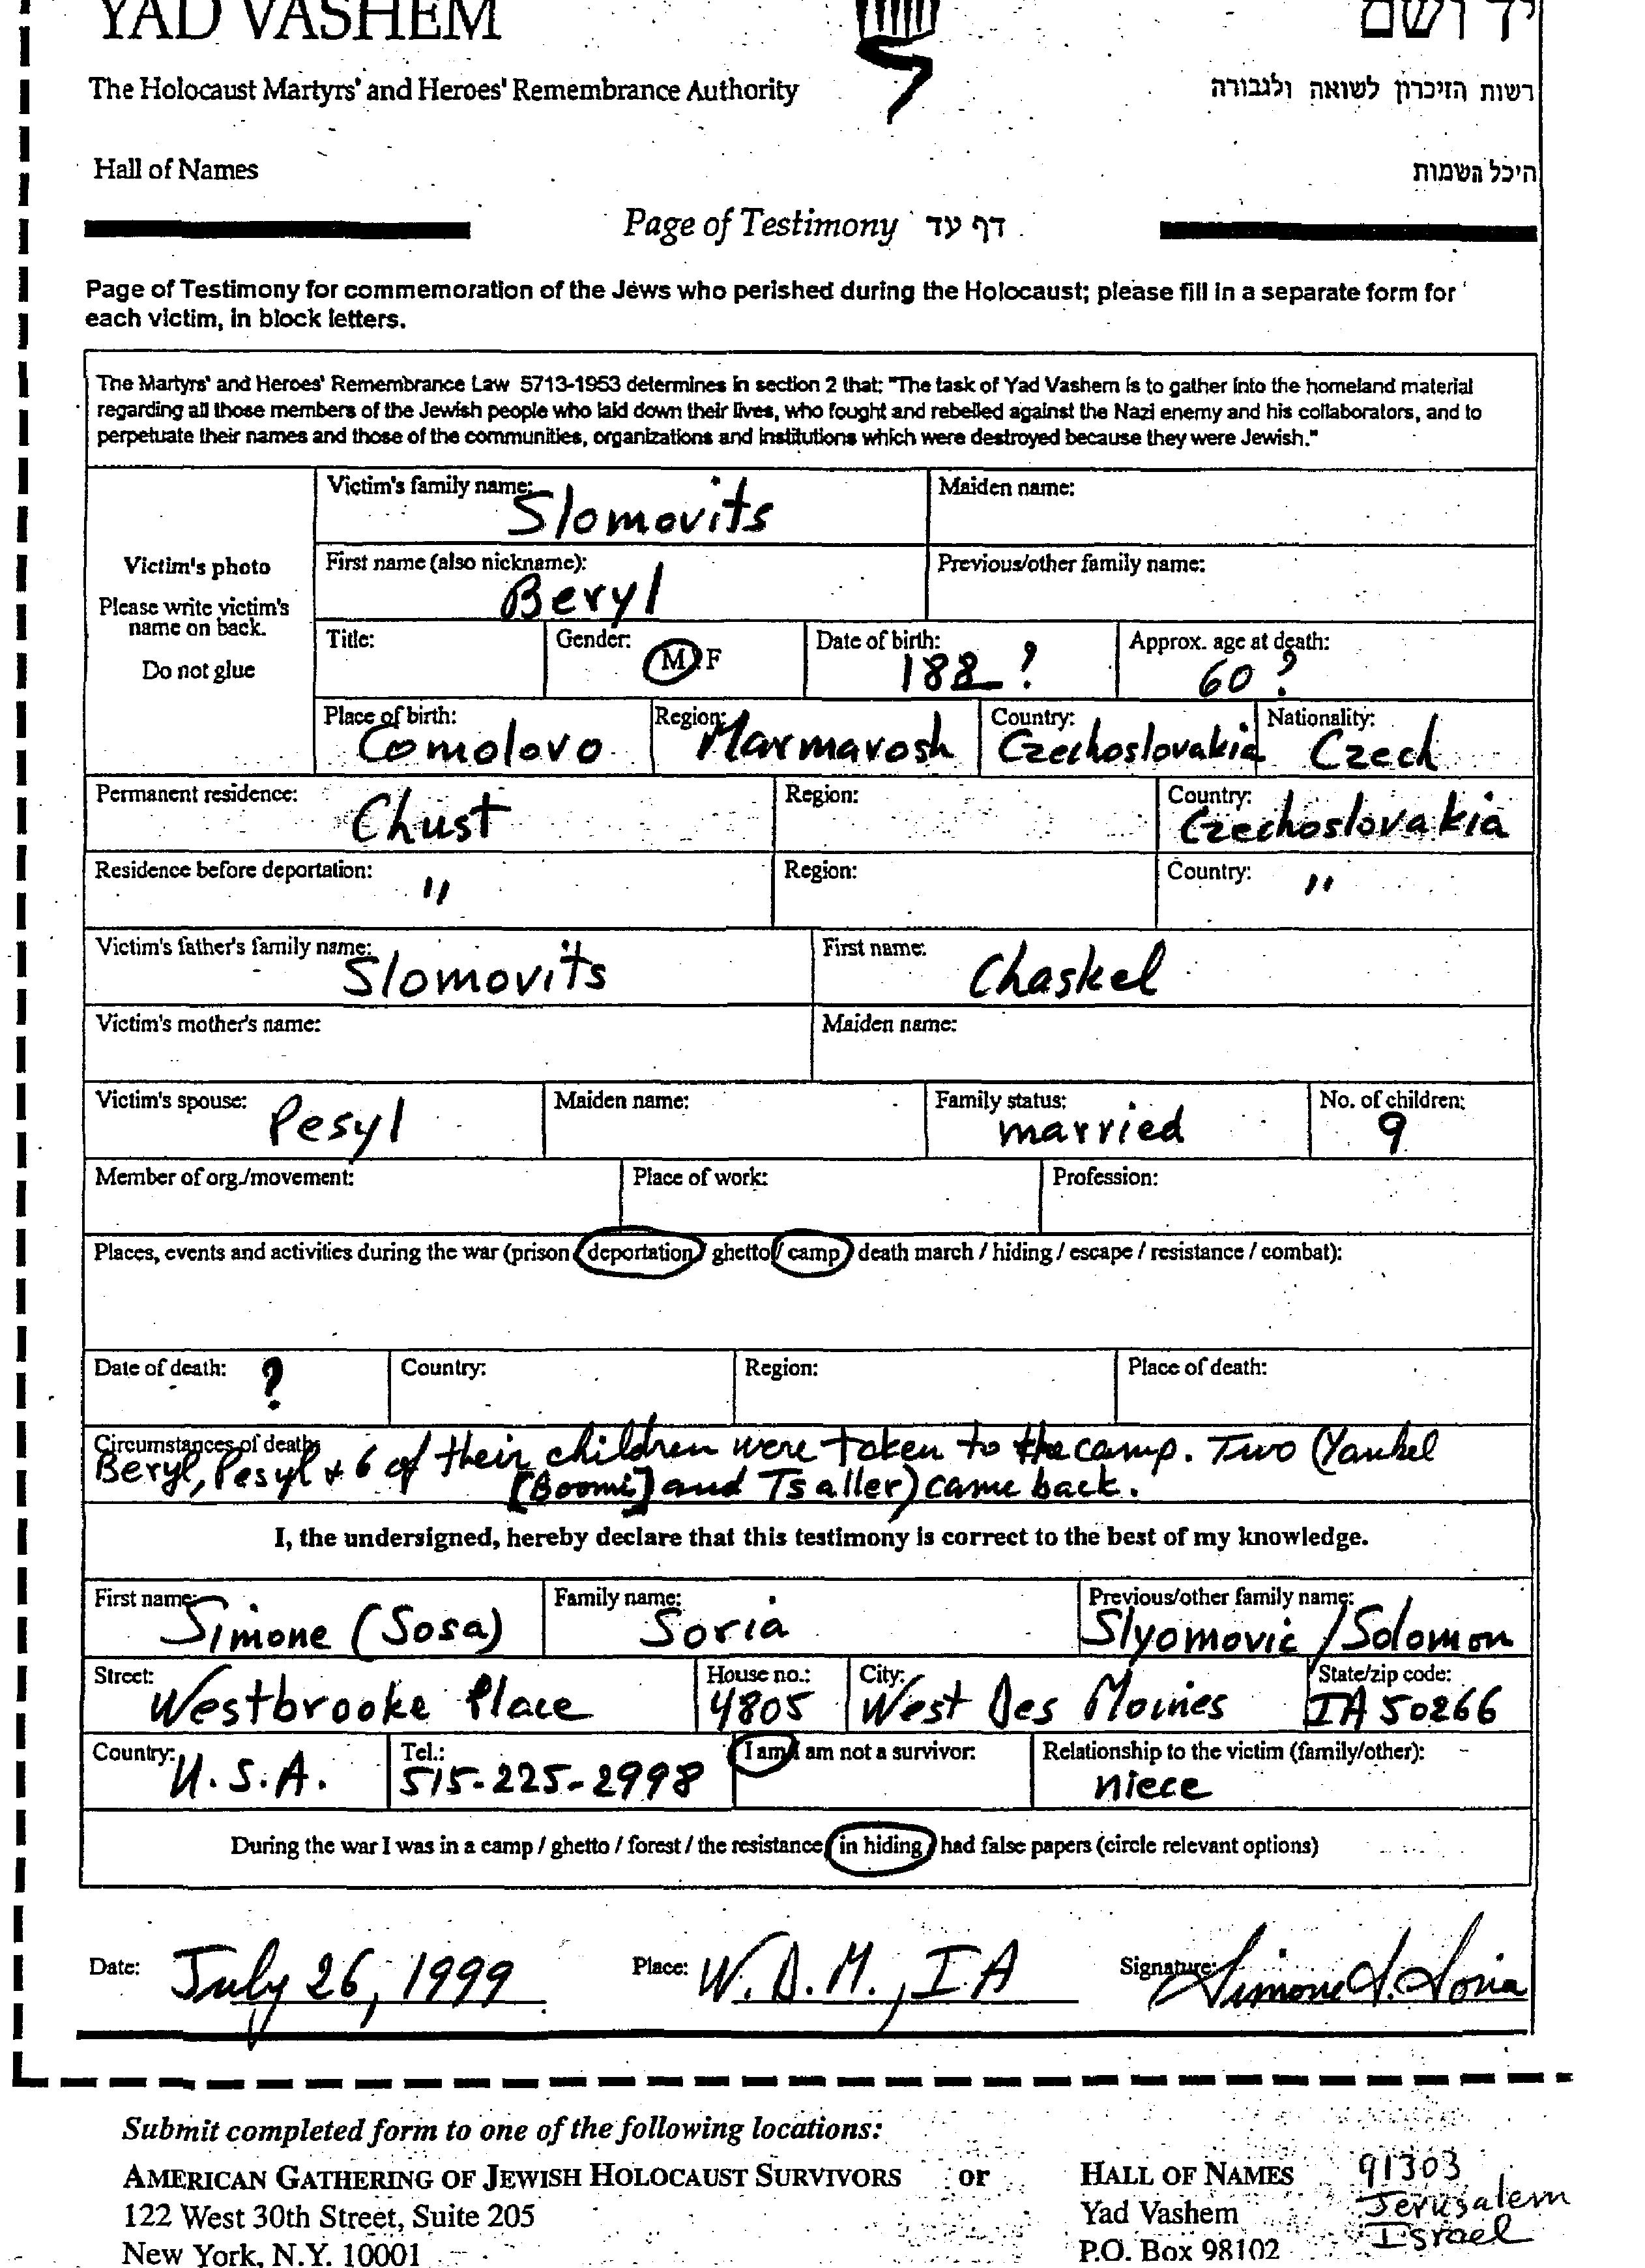 YAD VASHEM יד ושם
The Holocaust Martyrs' and Heroes' Remembrance Authority רשות הזיכרון לשואה ולגבורה
Hall of Names היכל השמות
Page of Testimony דף עד
Page of Testimony for commemoration of the Jews who perished during the Holocaust; please fill in a separate form for
each victim, in block letters.
The Martyrs' and Heroes' Remembrance Law 5713-1953 determines in section 2 that: "The task of Yad Vashem is to gather into the homeland material
regarding all those members of the Jewish people who laid down their lives, who fought and rebelled against the Nazi enemy and his collaborators, and to
perpetuate their names and those of the communities, organizations and institutions which were destroyed because they were Jewish."
Victim's photo
Please write victim's
name on back.
Do not glue
Victim's family name: Slomovits Maiden name:
First name (also nickname): Beryl Previous/other family name:
Title: Gender: M/F Date of birth: 188_? Approx. age at death: 60?
Place of birth: Comolovo Region: Marmarosh Country: Czechoslovakia Nationality: Czech
Permanent residence: Chust Region: Country: Czechoslovakia
Residence before deportation: " Region: Country: "
Victim's father's family name: Slomovits First name: Chaskel
Victim's mother's name: Maiden name:
Victim's spouse: Pesyl Maiden name: Family status: married No. of children: 9
Member of org./movement: Place of work: Profession:
Places, events and activities during the war (prison / deportation / ghetto / camp / death march / hiding / escape / resistance / combat):
Date of death: ? Country: Region: Place of death:
Circumstances of death:
Beryl, Pesyl + 6 of their children were taken to the camp. Two (Yankel
[Boomi] and Tsaller) came back.
I, the undersigned, hereby declare that this testimony is correct to the best of my knowledge.
First name: Simone (Sosa) Family name: Soria Previous/other family name: Slyomovic / Solomon
Street: Westbrooke Place House no.: 4805 City: West Des Moines State/zip code: IA 50266
Country: U.S.A. Tel.: 515-225-2998 I am/I am not a survivor: Relationship to the victim (family/other): niece
During the war I was in a camp / ghetto / forest / the resistance / in hiding / had false papers (circle relevant options)
Date: July 26, 1999 Place: W.D.M., IA Signature: Simone S. Soria
Submit completed form to one of the following locations:
AMERICAN GATHERING OF JEWISH HOLOCAUST SURVIVORS or HALL OF NAMES 91303
122 West 30th Street, Suite 205 Yad Vashem Jerusalem
New York, N.Y. 10001 P.O. Box 98102 Israel